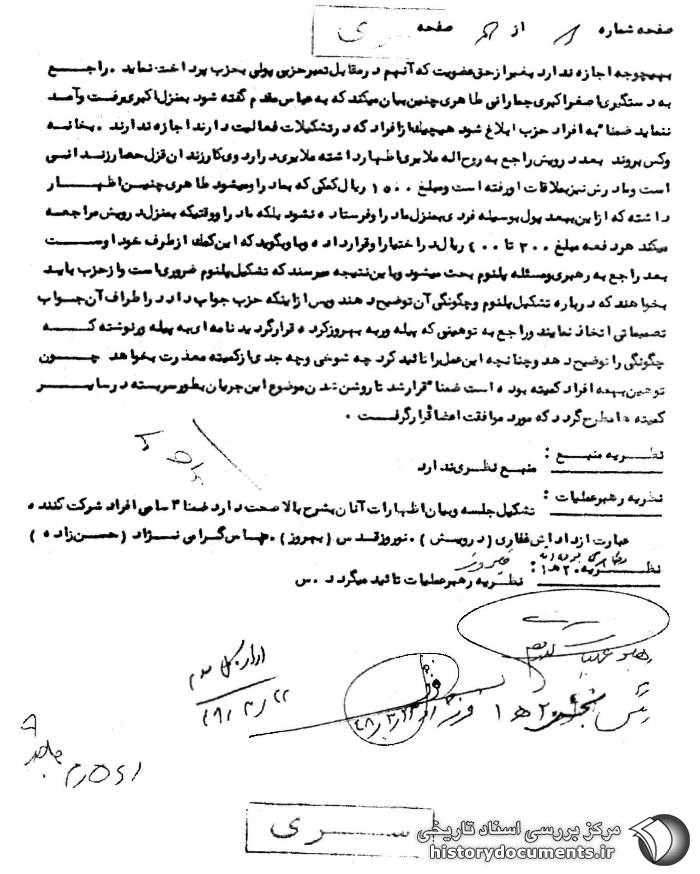 صفحه شماره ۸ از صفحه
سری
بهیچوجه اجازه ندارد بغیر از حق عضویت که آنهم در مقابل تمبر حزبی پولی بحزب پرداخت نماید . راجع
به دستگیری اصغر اکبری جمارانی طاهری چنین بیان میکند که به عباس مقدم گفته شود بمنزل اکبری رفت و آمد
ننماید ضمنا" به افراد حزب ابلاغ شود هیچیک از افراد که در تشکیلات فعالیت دارند اجازه ندارند . بخانه
وکس بروند بعد درویش راجع به روح اله ملایری اظهار داشته ملایری دارد وی کارزندان قزل حصار زندانی
است و مادرش نیز بملاقات او رفته است و مبلغ ۱۵۰۰ ریال کمکی که بمادر او میشود طاهری چنین اظهار
داشته که از این ببعد پول بوسیله فردی بمنزل مادر او فرستاده نشود بلکه مادر او وقتیکه بمنزل درویش مراجعه
میکند هر دفعه مبلغ ۳۰۰ تا ۴۰۰ ریال در اختیار او قرار داده و باو بگوید که این کمک از طرف خود اوست
بعد راجع به رهبری ومسئله پلنوم بحث میشود و باین نتیجه میرسند که تشکیل پلنوم ضروری است و از حزب باید
بخواهند که درباره تشکیل پلنوم و چگونگی آن توضیح دهند و پس از اینکه حزب جواب داد در اطراف آن جواب
تصمیماتی اتخاذ نمایند و راجع به توهینی که پیله ور به بهروز کرده قرار گردید نامه ای به پیله ور نوشته که
چگونگی را توضیح دهد و چنانچه این عمل را تائید کرد چه شوخی و چه جدی از کمیته معذرت بخواهد چون
توهین بهمه افراد کمیته بوده است ضمنا" قرار شد تا روشن شدن موضوع این جریان بطور سربسته در سایر
کمیته ها مطرح گردد که مورد موافقت اعضا قرار گرفت .
نظریه منبع : منبع نظری ندارد
نظریه رهبر عملیات : تشکیل جلسه و بیان اظهارات آنان بشرح بالا صحت دارد ضمنا ۳ اسامی افراد شرکت کننده
عبارت از داداش غفاری ( درویش ) . نوروز قدس ( بهروز ) . عباس گرامی نژاد ( حسن زاده )
نظریه ۲۰ ه ۱ : نظریه رهبر عملیات تائید میگردد . س
رهبر عملیات
اداره کل سوم
رئیس بخش ۲۰ ه ۱
سری
مرکز بررسی اسناد تاریخی
historydocuments.ir